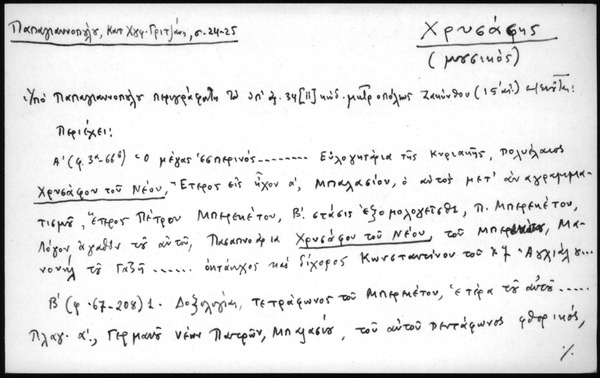 Παπαγιαννοπούλου, Κατ Χφφ. Γριτσάνη, σ. 24-25
Χρυσάφης
(μουσικός)
Ὑπὸ Παπαγιαννοπούλου περιγράφεται τὸ ὑπ' ἀρ. 34 [ii] κώδ. μητροπόλεως Ζακύνθου (15' αἰ.)
Περιέχει:
Α' (φ. 3α-66β) Ὁ μέγας ἑσπερινός -------- Εὐλογητάρια τῆς Κυριακῆς, πολυέλαιος
Χρυσάφου τοῦ Νέου, Ἕτερος εἰς ἦχον α', Μπαλασίου, ὁ αὐτὸς μετ' ἀναγραμμα-
τισμοῦ, ἕτερος Πέτρου Μπερεκέτου, Β'. στάσις ἐξομολογεῖσθε, Π. Μπερεκέτου,
Λόγον ἀγαθὸν τοῦ αὐτοῦ, Πασαπνοάρια Χρυσάφου τοῦ Νέου, τοῦ Μπερεκέτου, Μα-
νουὴλ τοῦ Γαζῆ ...... ὀκτάηχος καὶ δίχορος Κωνσταντίνου τοῦ ἐξ Ἀγχιάλου...
Β' (φ. 67-208) 1. Δοξολογίαι, τετράφωνος τοῦ Μπερεκέτου, ἑτέρα τοῦ αὐτοῦ .....
Πλαγ. α'., Γερμανοῦ νέων Πατρῶν, Μπαλασίου, τοῦ αὐτοῦ πεντάφωνος φθορικός,
./.